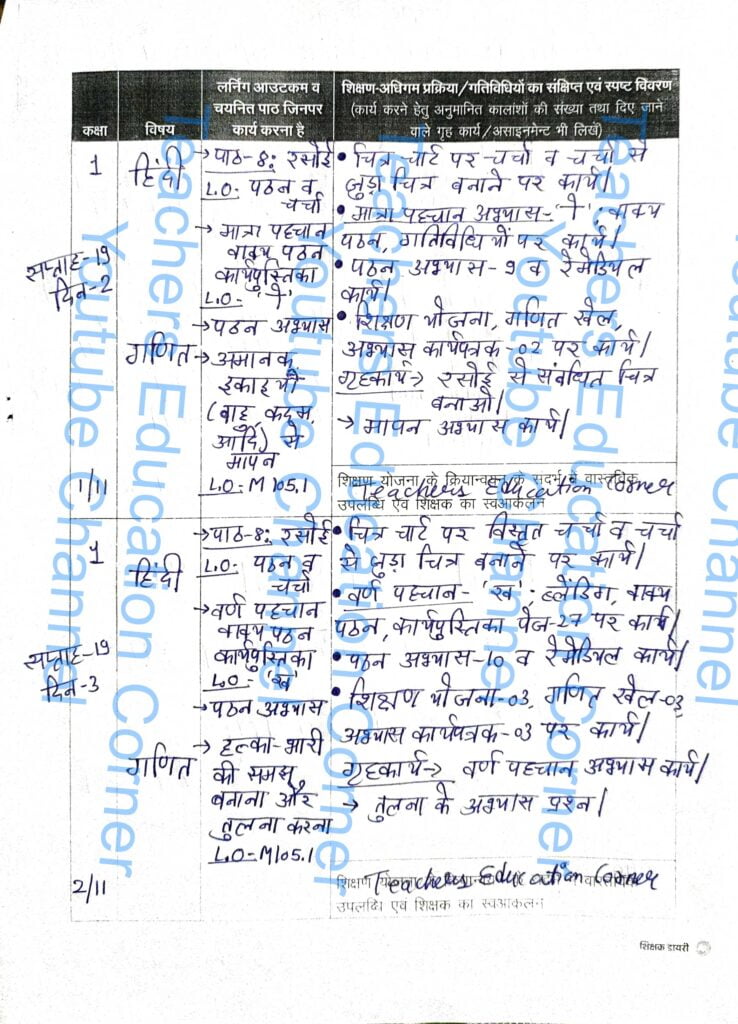 कक्षा
विषय
लर्निंग आउटकम व
चयनित पाठ जिनपर
कार्य करना है
शिक्षण-अधिगम प्रक्रिया/गतिविधियों का संक्षिप्त एवं स्पष्ट विवरण
(कार्य करने हेतु अनुमानित कालांशों की संख्या तथा दिए जाने
वाले गृह कार्य/असाइनमेंट भी लिखें)
1
हिंदी
सप्ताह-19
दिन-2
→ पाठ-8: रसोई
L.O- पठन व
चर्चा
→ मात्रा पहचान
वाक्य पठन
कार्यपुस्तिका
L.O- 'ो'
→ पठन अभ्यास
• चित्र चार्ट पर चर्चा व चर्चा से
जुड़ा चित्र बनाने पर कार्य।
• मात्रा पहचान अभ्यास- 'ो', वाक्य
पठन, गतिविधियों पर कार्य।
• पठन अभ्यास-9 व रेमेडियल
कार्य।
गणित
→ अमानक
इकाइयों
(बाह, कदम,
आदि) से
मापन
L.O-M105.1
• शिक्षण योजना, गणित खेल,
अभ्यास कार्यपत्रक-02 पर कार्य।
गृहकार्य→ रसोई से संबंधित चित्र
बनाओ।
→ मापन अभ्यास कार्य।
1/11
शिक्षण योजना के क्रियान्वयन के संदर्भ में वास्तविक
उपलब्धि एवं शिक्षक का स्वआकलन
Teachers Education Corner
1
हिंदी
सप्ताह-19
दिन-3
→ पाठ-8: रसोई
L.O- पठन व
चर्चा
→ वर्ण पहचान
वाक्य पठन
कार्यपुस्तिका
L.O- 'ख'
→ पठन अभ्यास
• चित्र चार्ट पर विस्तृत चर्चा व चर्चा
से जुड़ा चित्र बनाने पर कार्य।
• वर्ण पहचान- 'ख', ब्लेंडिंग, वाक्य
पठन, कार्यपुस्तिका पेज-27 पर कार्य।
• पठन अभ्यास-10 व रेमेडियल कार्य।
गणित
→ हल्का-भारी
की समझ
बनाना और
तुलना करना
L.O-M105.1
• शिक्षण योजना-03, गणित खेल-03,
अभ्यास कार्यपत्रक-03 पर कार्य।
गृहकार्य→ वर्ण पहचान अभ्यास कार्य।
→ तुलना के अभ्यास प्रश्न।
2/11
शिक्षण
उपलब्धि एवं शिक्षक का स्वआकलन
Teachers Education Corner
शिक्षक डायरी
Teachers Education Corner
Youtube Channel
Teachers Education Corner
Youtube Channel
Teachers Education Corner
Youtube Channel